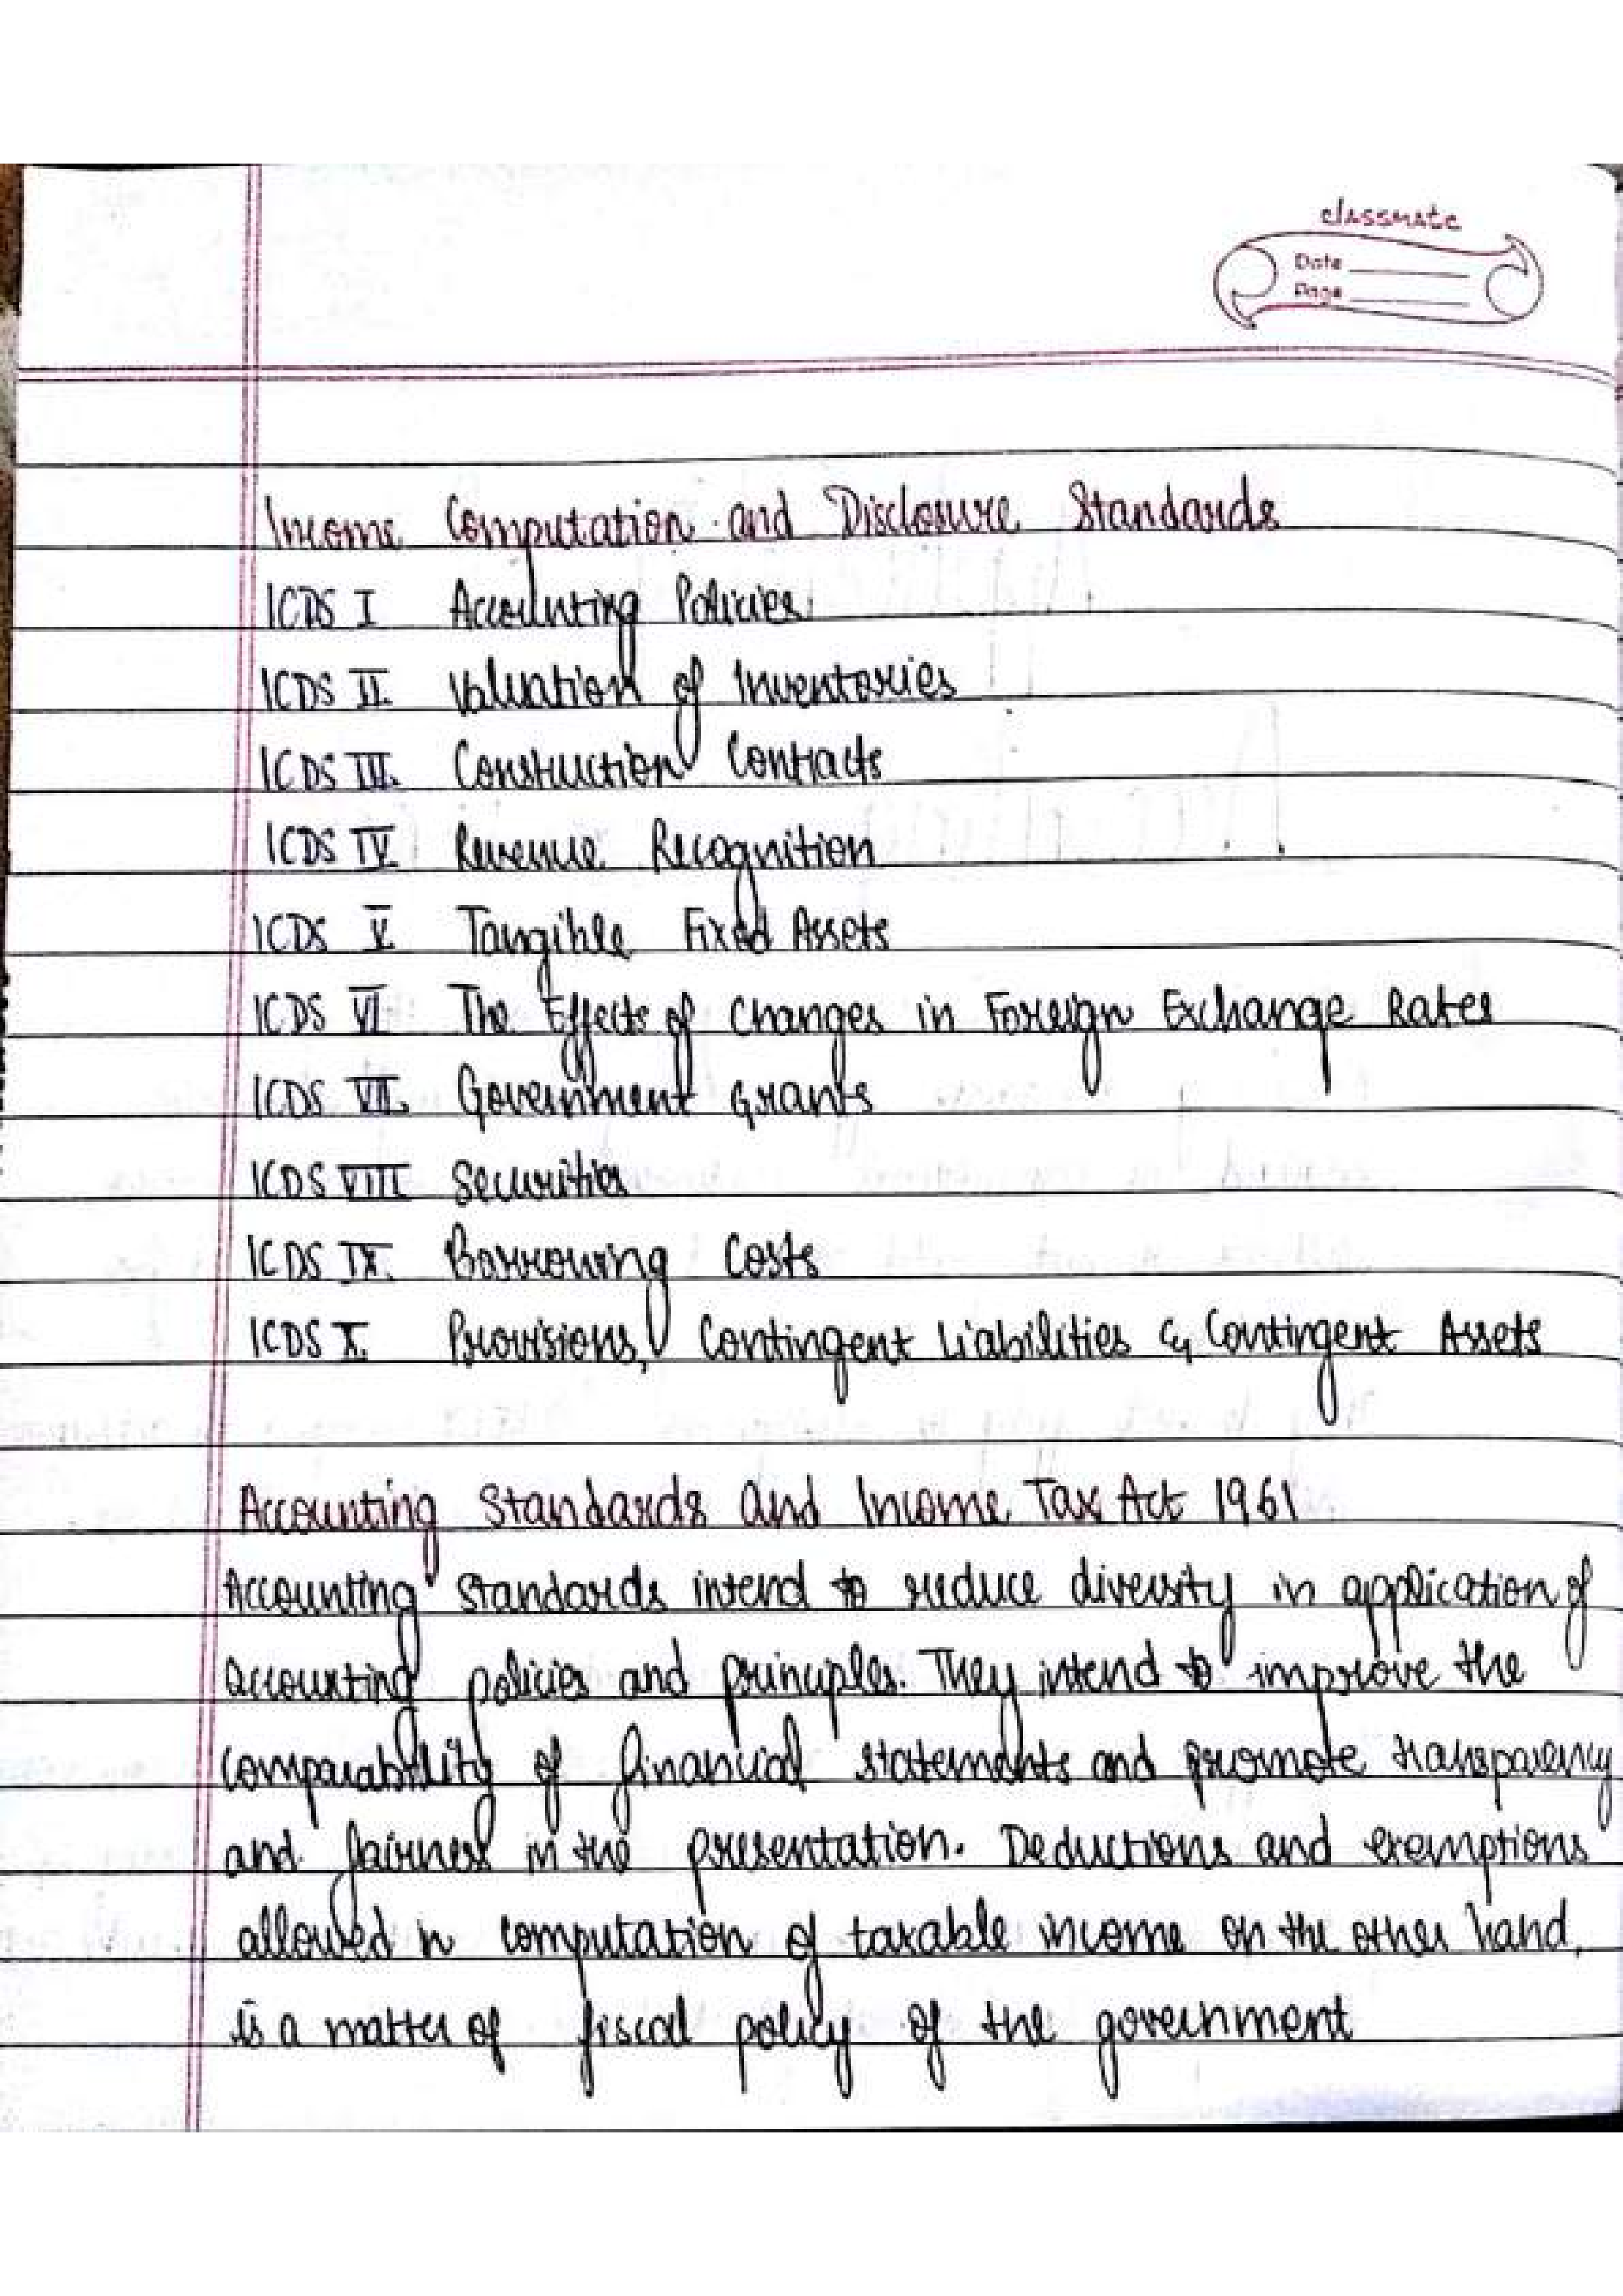 classmate
Date
Page
Income Computation and Disclosure Standards
ICDS I Accounting Policies
ICDS II. Valuation of Inventories
ICDS III. Construction Contracts
ICDS IV. Revenue Recognition
ICDS V. Tangible Fixed Assets
ICDS VI. The Effects of Changes in Foreign Exchange Rates
ICDS VII. Government Grants
ICDS VIII Securities
ICDS IX. Borrowing Costs
ICDS X. Provisions, Contingent Liabilities & Contingent Assets
Accounting Standards and Income Tax Act 1961
Accounting Standards intend to reduce diversity in application of
accounting policies and principles. They intend to improve the
comparability of financial statements and promote transparency
and fairness in the presentation. Deductions and exemptions
allowed in computation of taxable income on the other hand,
is a matter of fiscal policy of the government